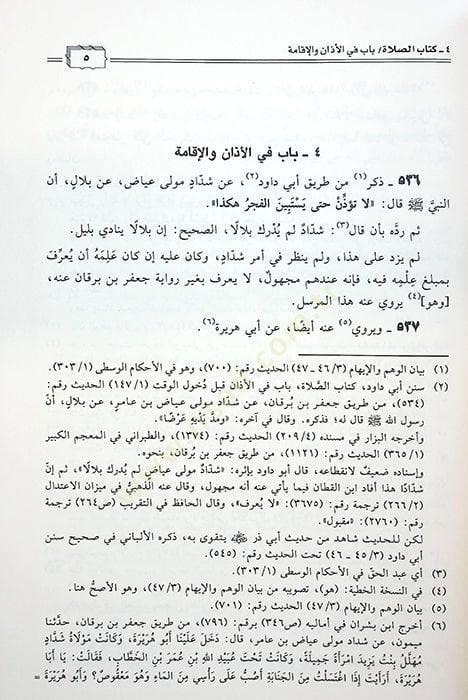 ٤ - كتاب الصلاة/ باب في الأذان والإقامة
٥
٤ - باب في الأذان والإقامة
٥٣٦ - ذكر(١) من طريق أبي داود(٢)، عن شدّاد مولى عياض، عن بلال، أن
النبيَّ ﷺ قال: «لا تؤذِّنْ حتى يَسْتَبِينَ الفجرُ هكذا».
ثم ردَّه بأن قال(٣): شدّادٌ لم يُدرك بلالًا، الصحيح: إن بلالًا ينادي بليل.
لم يزد على هذا، ولم ينظر في أمر شدّادٍ، وكان عليه إن كان عَلِمَهُ أن يُعرِّفَ
بمبلغ عِلْمِه فيه، فإنه عندهم مجهولٌ، لا يعرف بغير رواية جعفر بن برقان عنه،
[وهو](٤) يروي عنه هذا المرسل.
٥٣٧ - ويروي(٥) عنه أيضًا، عن أبي هريرة(٦).
(١) بيان الوهم والإيهام (٣/ ٤٦ - ٤٧) الحديث رقم: (٧٠٠)، وهو في الأحكام الوسطى (١/ ٣٠٣).
(٢) سنن أبي داود، كتاب الصَّلاة، باب في الأذان قبل دُخول الوقت (١/ ١٤٧) الحديث رقم:
(٥٣٤)، من طريق جعفر بن بُرقان، عن شدّاد مولى عياض بن عامرٍ، عن بلالٍ، أنَّ
رسول الله ﷺ قال له؛ فذكره. وقال في آخره: «ومدَّ يدَيْهِ عَرْضًا».
وأخرجه البزار في مسنده (٤/ ٢٠٩) الحديث رقم: (١٣٧٤)، والطبراني في المعجم الكبير
(١/ ٣٦٥) الحديث رقم: (١١٢١)، من طريق جعفر بن بُرقان، بنحوه.
وإسناده ضعيفٌ لانقطاعه، قال أبو داود بإثره: «شدّادٌ مولى عياضٍ لم يُدرك بلالًا»، ثم إنّ
شدّادًا هذا أفاد ابن القطان فيما يأتي عنه أنه مجهول، وقال عنه الذَّهبيُّ في ميزان الاعتدال
(٢/ ٢٦٦) ترجمة رقم: (٣٦٧٥): «لا يُعرف»، وقال الحافظ في التقريب (ص٢٦٤) ترجمة
رقم: (٢٧٦٠): «مقبول».
لكن للحديث شاهد من حديث أبي ذر ﵁ يتقوى به، ذكره الألباني في صحيح سنن
أبي داود (٣/ ٤٥ - ٤٦) تحت الحديث رقم: (٥٤٥).
(٣) أي عبد الحقّ في الأحكام الوسطى (١/ ٣٠٣).
(٤) في النسخة الخطية: (هو)، تصويبه من بيان الوهم والإيهام (٣/ ٤٧)، وهو الأصحُّ هنا.
(٥) بيان الوهم والإيهام (٣/ ٤٧) الحديث رقم: (٧٠١).
(٦) أخرج ابن بشران في أماليه (ص٣٤٦) برقم: (٧٩٦)، من طريق جعفر بن برقان، حدَّثنا
ميمون، عن شداد مولى عياض بن عامر، قال: دَخَلَ عَلَيْنَا أَبُو هُرَيْرَةَ، وَكَانَتْ مَوْلَاةُ شَدَّادٍ
مُهَلَّلُ بِنْتُ يَزِيدَ امْرَأَةً جَمِيلَةً، وَكَانَتْ تَحْتَ عُبَيْدِ اللهِ بْنِ عُمَرَ بْنِ الْخَطَّابِ، فَقَالَتْ: يَا أَبَا
هُرَيْرَةَ، أَرَأَيْتَ إِذَا اغْتَسَلْتُ مِنَ الْجَنَابَةِ أَصُبُّ عَلَى رَأْسِي مِنَ الْمَاءِ وَهُوَ مَعْقُوصٌ؟ وَأَبُو هُرَيْرَةَ =